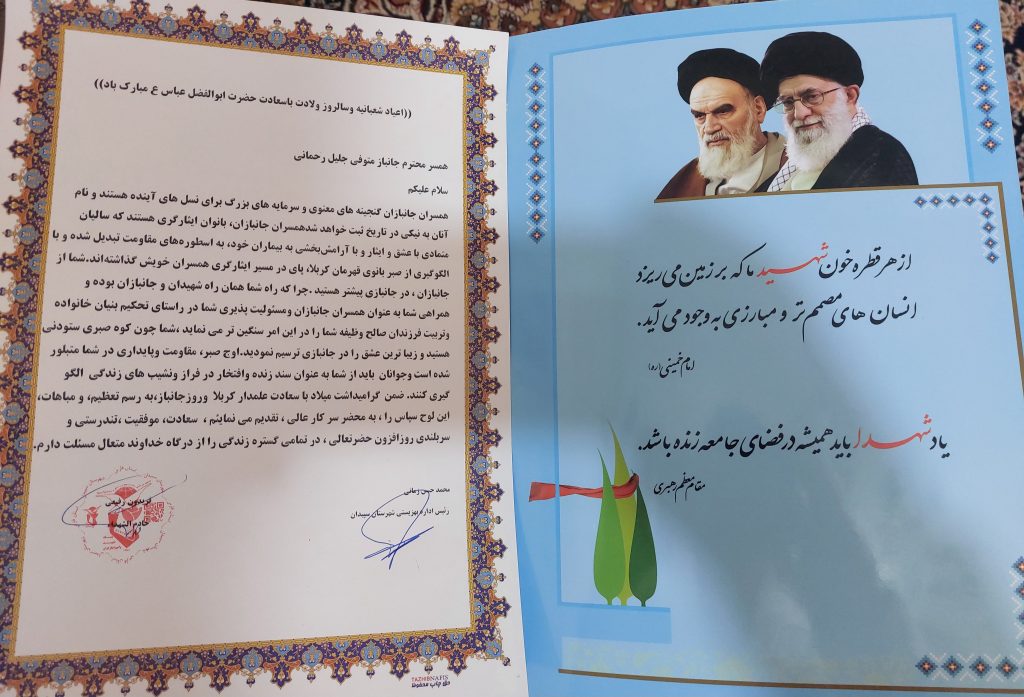 ((اعیاد شعبانیه وسالروز ولادت باسعادت حضرت ابوالفضل عباس ع مبارک باد))
همسر محترم جانباز متوفی جلیل رحمانی
سلام علیکم
همسران جانبازان گنجینه های معنوی و سرمایه های بزرگ برای نسل های آینده هستند و نام
آنان به نیکی در تاریخ ثبت خواهد شدهمسران جانبازان، بانوان ایثارگری هستند که سالیان
متمادی با عشق و ایثار و با آرامش‌بخشی به بیماران خود، به اسطوره‌های مقاومت تبدیل شده و با
الگوگیری از صبر بانوی قهرمان کربلا، پای در مسیر ایثارگری همسران خویش گذاشته‌اند.شما از
جانبازان ، در جانبازی پیشتر هستید .چرا که راه شما همان راه شهیدان و جانبازان بوده و
همراهی شما به عنوان همسران جانبازان ومسئولیت پذیری شما در راستای تحکیم بنیان خانواده
وتربیت فرزندان صالح وظیفه شما را در این امر سنگین تر می نماید ،شما چون کوه صبری ستودنی
هستید و زیبا ترین عشق را در جانبازی ترسیم نمودید.اوج صبر، مقاومت وپایداری در شما متبلور
شده است وجوانان باید از شما به عنوان سند زنده وافتخار در فراز ونشیب های زندگی الگو
گیری کنند. ضمن گرامیداشت میلاد با سعادت علمدار کربلا وروزجانباز،به رسم تعظیم، و مباهات،
این لوح سپاس را ، به محضر سر کار عالی ، تقدیم می نمائیم ، سعادت، موفقیت ،تندرستی و
سربلندی روزافزون حضرتعالی ، در تمامی گستره زندگی را از درگاه خداوند متعال مسئلت دارم.
محمد حسن زمانی
رئیس اداره بهزیستی شهرستان سپیدان
فریدون رفیعی
خادم الشهدا
TAZHIBNAFIS
حق چاپ محفوظ
از هر قطره خون شهید ما که بر زمین می ریزد
انسان های مصمم تر و مبارزی به وجود می آید.
امام خمینی (ره)
یاد شهدا باید همیشه در فضای جامعه زنده باشد.
مقام معظم رهبری